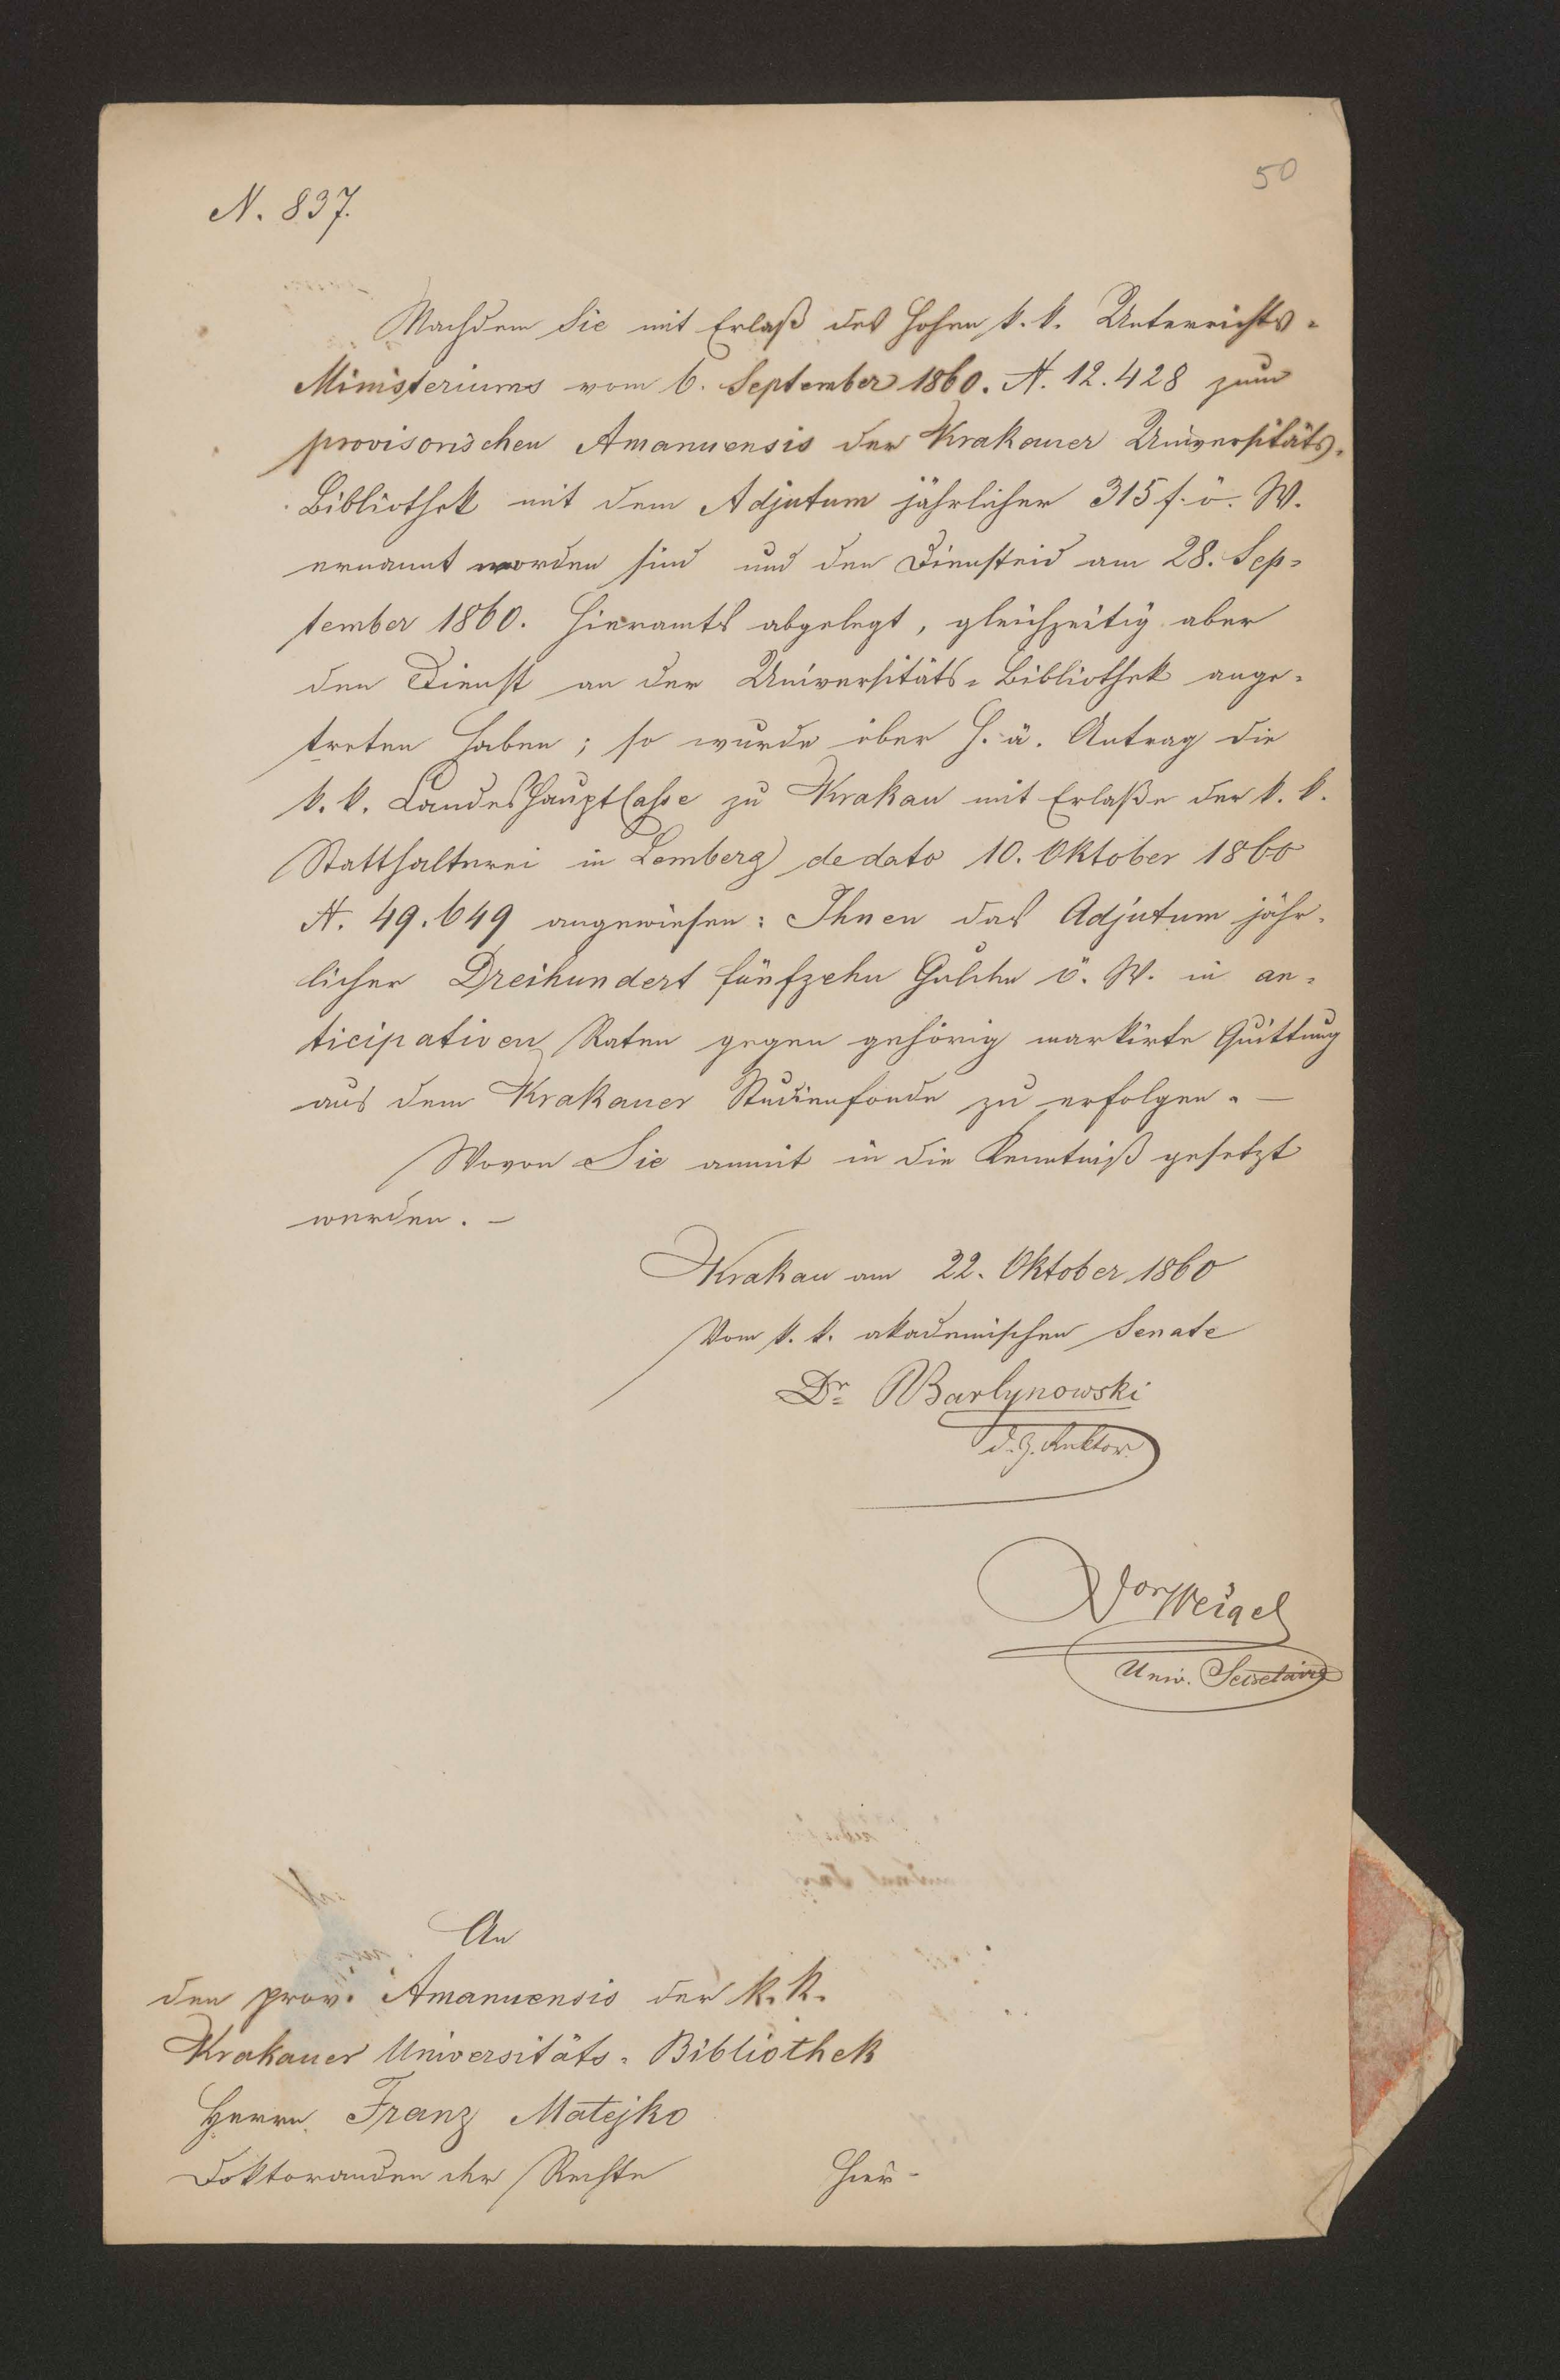 50
N. 837.
Nachdem Sie mit Erlaß des hohen k. k. Unterrichts-
Ministeriums vom 6. September 1860. N. 12.428 zum
provisorischen Amanuensis der Krakauer Universitäts-
Bibliothek mit dem Adjutum jährlicher 315 f. ö. W.
ernannt worden sind und den Diensteid am 28. Sep-
tember 1860. hieramts abgelegt, gleichzeitig aber
den Dienst an der Universitäts-Bibliothek ange-
treten haben; so wurde über h. ä. Antrag die
k. k. Landeshauptcasse zu Krakau mit Erlaße der k. k.
Statthalterei in Lemberg de dato 10. Oktober 1860
N. 49.649 angewiesen: Ihnen das Adjutum jähr-
licher Dreihundert fünfzehn Gulden ö. W. in an-
ticipativen Raten gegen gehörig markirte Quittung
aus dem Krakauer Studienfonde zu erfolgen. —
Wovon Sie anmit in die Kenntniß gesetzt
werden. —
Krakau am 22. Oktober 1860
Vom k. k. akademischen Senate
Dr Bartynowski
d. Z. Rektor
Weigel
Univ. Secretaire
An
den prov. Amanuensis der k. k.
Krakauer Universitäts-Bibliothek
Herrn Franz Matejko
Doktoranden der Rechte hier-